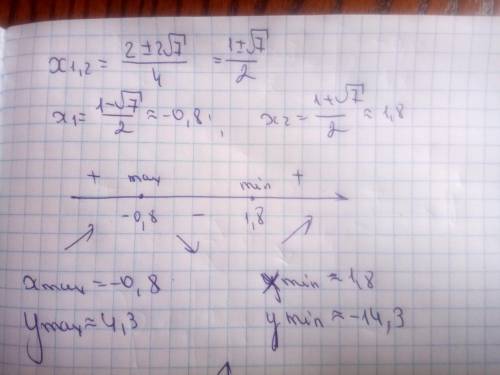 x₁,₂ = (2 ± 2√7)/4 = (1 ± √7)/2
x₁ = (1 - √7)/2 ≈ -0,8 ; x₂ = (1 + √7)/2 ≈ 1,8
+ max min +
-0,8 - 1,8
xmax = -0,8 xmin ≈ 1,8
ymax ≈ 4,3 ymin ≈ -14,3